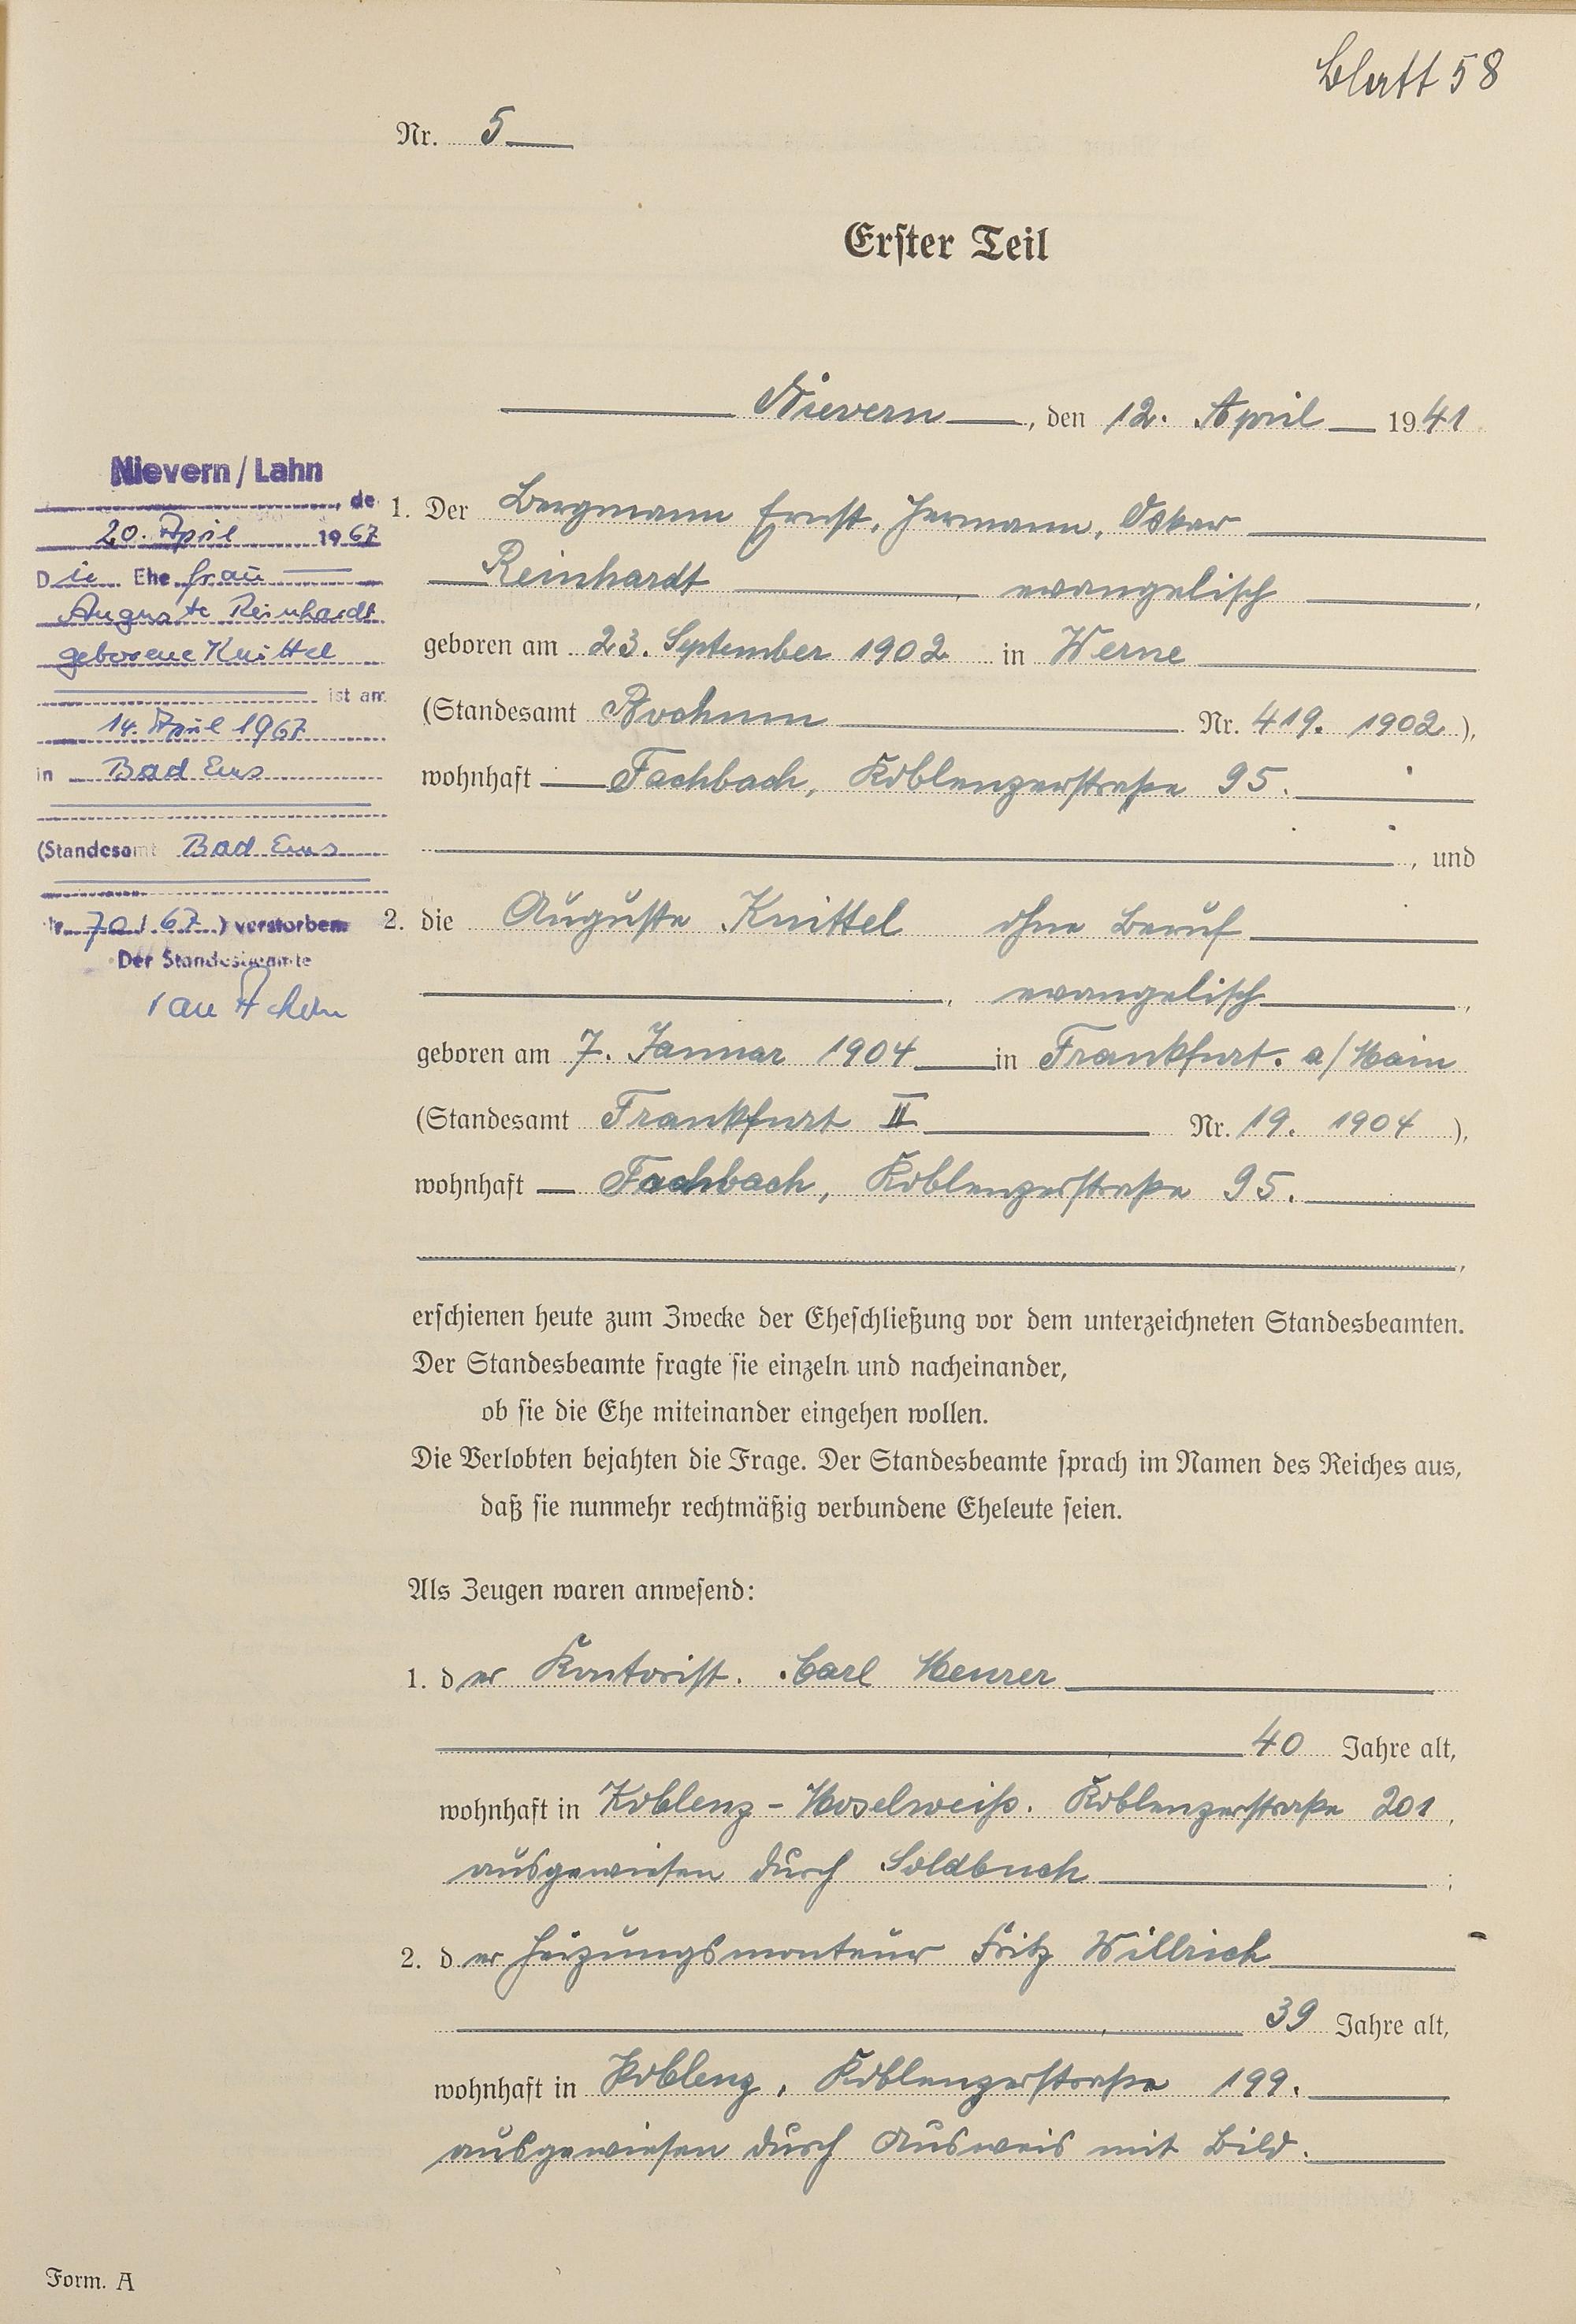 Blatt 58
Nr. 5
Erster Teil
Nievern, den 12. April 1941
Nievern/Lahn
, de
20. April 1967
Die Ehefrau
Auguste Reinhardt
geborene Knittel
ist am
14. April 1967
in Bad Ems
(Standesamt Bad Ems
Nr. 70/67) verstorben
Der Standesbeamte
1. Der Bergmann Ernst, Hermann, Oskar
Reinhardt, evangelisch,
geboren am 23. September 1902 in Werne
(Standesamt Bochum Nr. 419. 1902),
wohnhaft Fachbach, Koblenzerstraße 95.
, und
2. die Auguste Knittel ohne Beruf
, evangelisch,
geboren am 7. Januar 1904 in Frankfurt. a/Main
(Standesamt Frankfurt II Nr. 19. 1904),
wohnhaft Fachbach, Koblenzerstraße 95.
,
erschienen heute zum Zwecke der Eheschließung vor dem unterzeichneten Standesbeamten.
Der Standesbeamte fragte sie einzeln und nacheinander,
ob sie die Ehe miteinander eingehen wollen.
Die Verlobten bejahten die Frage. Der Standesbeamte sprach im Namen des Reiches aus,
daß sie nunmehr rechtmäßig verbundene Eheleute seien.
Als Zeugen waren anwesend:
1. der Kontorist. Carl Meurer
40 Jahre alt,
wohnhaft in Koblenz-Moselweiß. Koblenzerstraße 201,
ausgewiesen durch Soldbuch;
2. der Heizungsmonteur Fritz Willrich
39 Jahre alt,
wohnhaft in Koblenz, Koblenzerstraße 199.
ausgewiesen durch Ausweis mit Bild.
Form. A